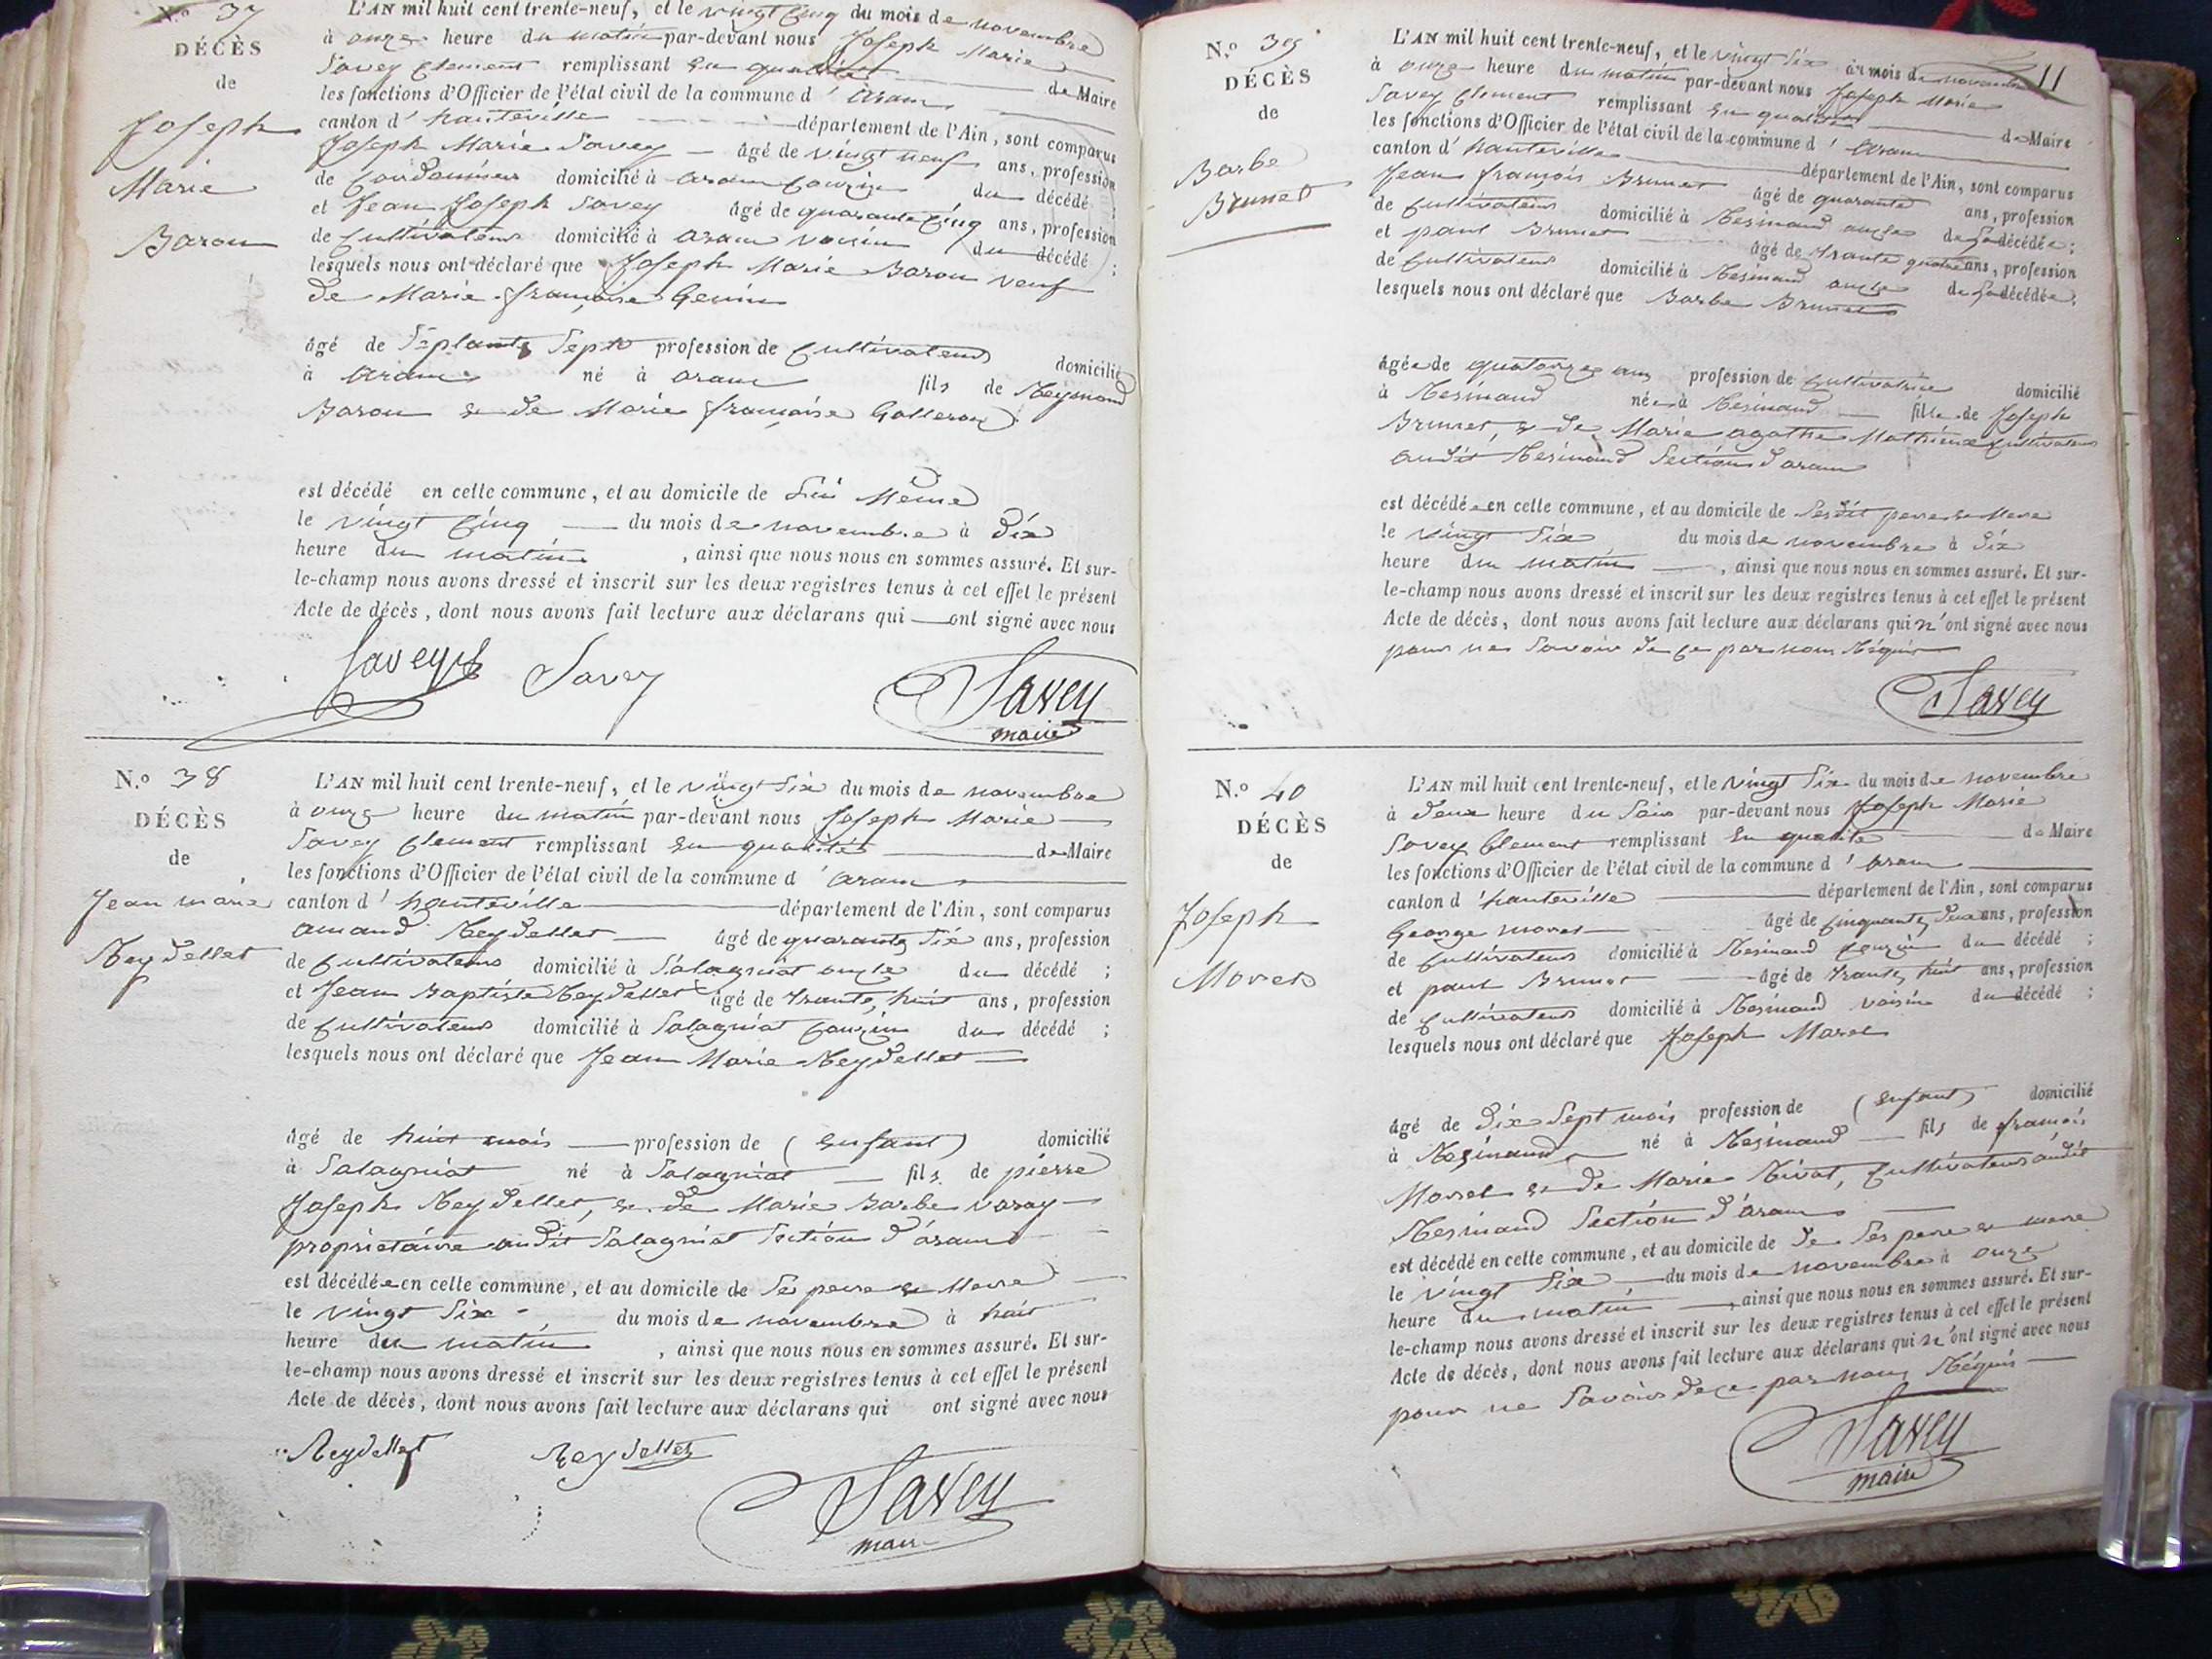 N.o 37
DÉCÈS
de
Joseph
Marie
Baron
L'AN mil huit cent trente-neuf, et le vingt cinq du mois de novembre
à onze heure du matin par-devant nous Joseph Marie
Savey Clement remplissant en qualité de Maire
les fonctions d'Officier de l'état civil de la commune d' aranc
canton d' hauteville département de l'Ain, sont comparus
Joseph Marie Savey âgé de vingt neuf ans, profession
de Cordonnier domicilié à aranc Couzin du décédé ;
et Jean Joseph Savey âgé de quarante Cinq ans, profession
de Cultivateur domicilié à aranc voisin du décédé ;
lesquels nous ont déclaré que Joseph Marie Baron veuf
de Marie françoise Genin
âgé de Septante Sept profession de Cultivateur domicilié
à aranc né à aranc fils de Reymond
Baron & de Marie françoise Galleron
est décédé en cette commune, et au domicile de Lui Même
le vingt Cinq du mois de novembre à Dix
heure du matin, ainsi que nous nous en sommes assuré. Et sur-
le-champ nous avons dressé et inscrit sur les deux registres tenus à cet effet le présent
Acte de décès, dont nous avons fait lecture aux déclarans qui ont signé avec nous
Savey Savey Savey
maire
N.o 38
DÉCÈS
de
Jean marie
Reydellet
L'AN mil huit cent trente-neuf, et le vingt Six du mois de novembre
à onze heure du matin par-devant nous Joseph Marie
Savey Clement remplissant en qualité de Maire
les fonctions d'Officier de l'état civil de la commune d' aranc
canton d' hauteville département de l'Ain, sont comparus
amand Reydellet âgé de quarante Six ans, profession
de Cultivateur domicilié à Salagniat oncle du décédé ;
et Jean Baptiste Reydellet âgé de trante huit ans, profession
de Cultivateur domicilié à Salagniat Couzin du décédé ;
lesquels nous ont déclaré que Jean Marie Reydellet
âgé de huit mois profession de (enfant) domicilié
à Salagniat né à Salagniat fils de pierre
Joseph Reydellet, & de Marie Barbe varay
proprietaire audit Salagniat Section d'aranc
est décédée en cette commune, et au domicile de Ses pere & Mere
le vingt Six du mois de novembre à huit
heure du matin, ainsi que nous nous en sommes assuré. Et sur-
le-champ nous avons dressé et inscrit sur les deux registres tenus à cet effet le présent
Acte de décès, dont nous avons fait lecture aux déclarans qui ont signé avec nous
Reydellet Reydellet Savey
maire
11
N.o 39
DÉCÈS
de
Barbe
Brunet
L'AN mil huit cent trente-neuf, et le vingt Six du mois de novembre
à onze heure du matin par-devant nous Joseph Marie
Savey Clement remplissant en qualité de Maire
les fonctions d'Officier de l'état civil de la commune d' aranc
canton d' hauteville département de l'Ain, sont comparus
Jean françois Brunet âgé de quarante ans, profession
de Cultivateur domicilié à Resinand oncle de la décédée ;
et paul Brunet âgé de trante quatre ans, profession
de Cultivateur domicilié à Resinand oncle de la décédée ;
lesquels nous ont déclaré que Barbe Brunet
âgée de quatorze ans profession de Cultivatrice domicilié
à Resinand née à Resinand fille de Joseph
Brunet, & de Marie agathe Mathieu Cultivateur
audit Resinand Section d'aranc
est décédée en cette commune, et au domicile de Sesdit pere & Mere
le vingt Six du mois de novembre à Dix
heure du matin, ainsi que nous nous en sommes assuré. Et sur-
le-champ nous avons dressé et inscrit sur les deux registres tenus à cet effet le présent
Acte de décès, dont nous avons fait lecture aux déclarans qui n'ont signé avec nous
pour ne Savoir de ce par nous Réquis
Savey
N.o 40
DÉCÈS
de
Joseph
Morel
L'AN mil huit cent trente-neuf, et le vingt Six du mois de novembre
à deux heure du Soir par-devant nous Joseph Marie
Savey Clement remplissant en qualité de Maire
les fonctions d'Officier de l'état civil de la commune d' aranc
canton d' hauteville département de l'Ain, sont comparus
George morel âgé de Cinquante, Deux ans, profession
de Cultivateur domicilié à Resinand Couzin du décédé ;
et paul Brunet âgé de trante, huit ans, profession
de Cultivateur domicilié à Resinand voisin du décédé ;
lesquels nous ont déclaré que Joseph Morel
âgé de Dix Sept mois profession de (enfant) domicilié
à Resinand né à Resinand fils de françois
Morel & de Marie Rivat, Cultivateurs audit
Resinand Section d'aranc
est décédé en cette commune, et au domicile de De Ses pere & mere
le vingt Six du mois de novembre à onze
heure du matin, ainsi que nous nous en sommes assuré. Et sur-
le-champ nous avons dressé et inscrit sur les deux registres tenus à cet effet le présent
Acte de décès, dont nous avons fait lecture aux déclarans qui n'ont signé avec nous
pour ne Savoir de ce par nous Réquis
Savey
maire